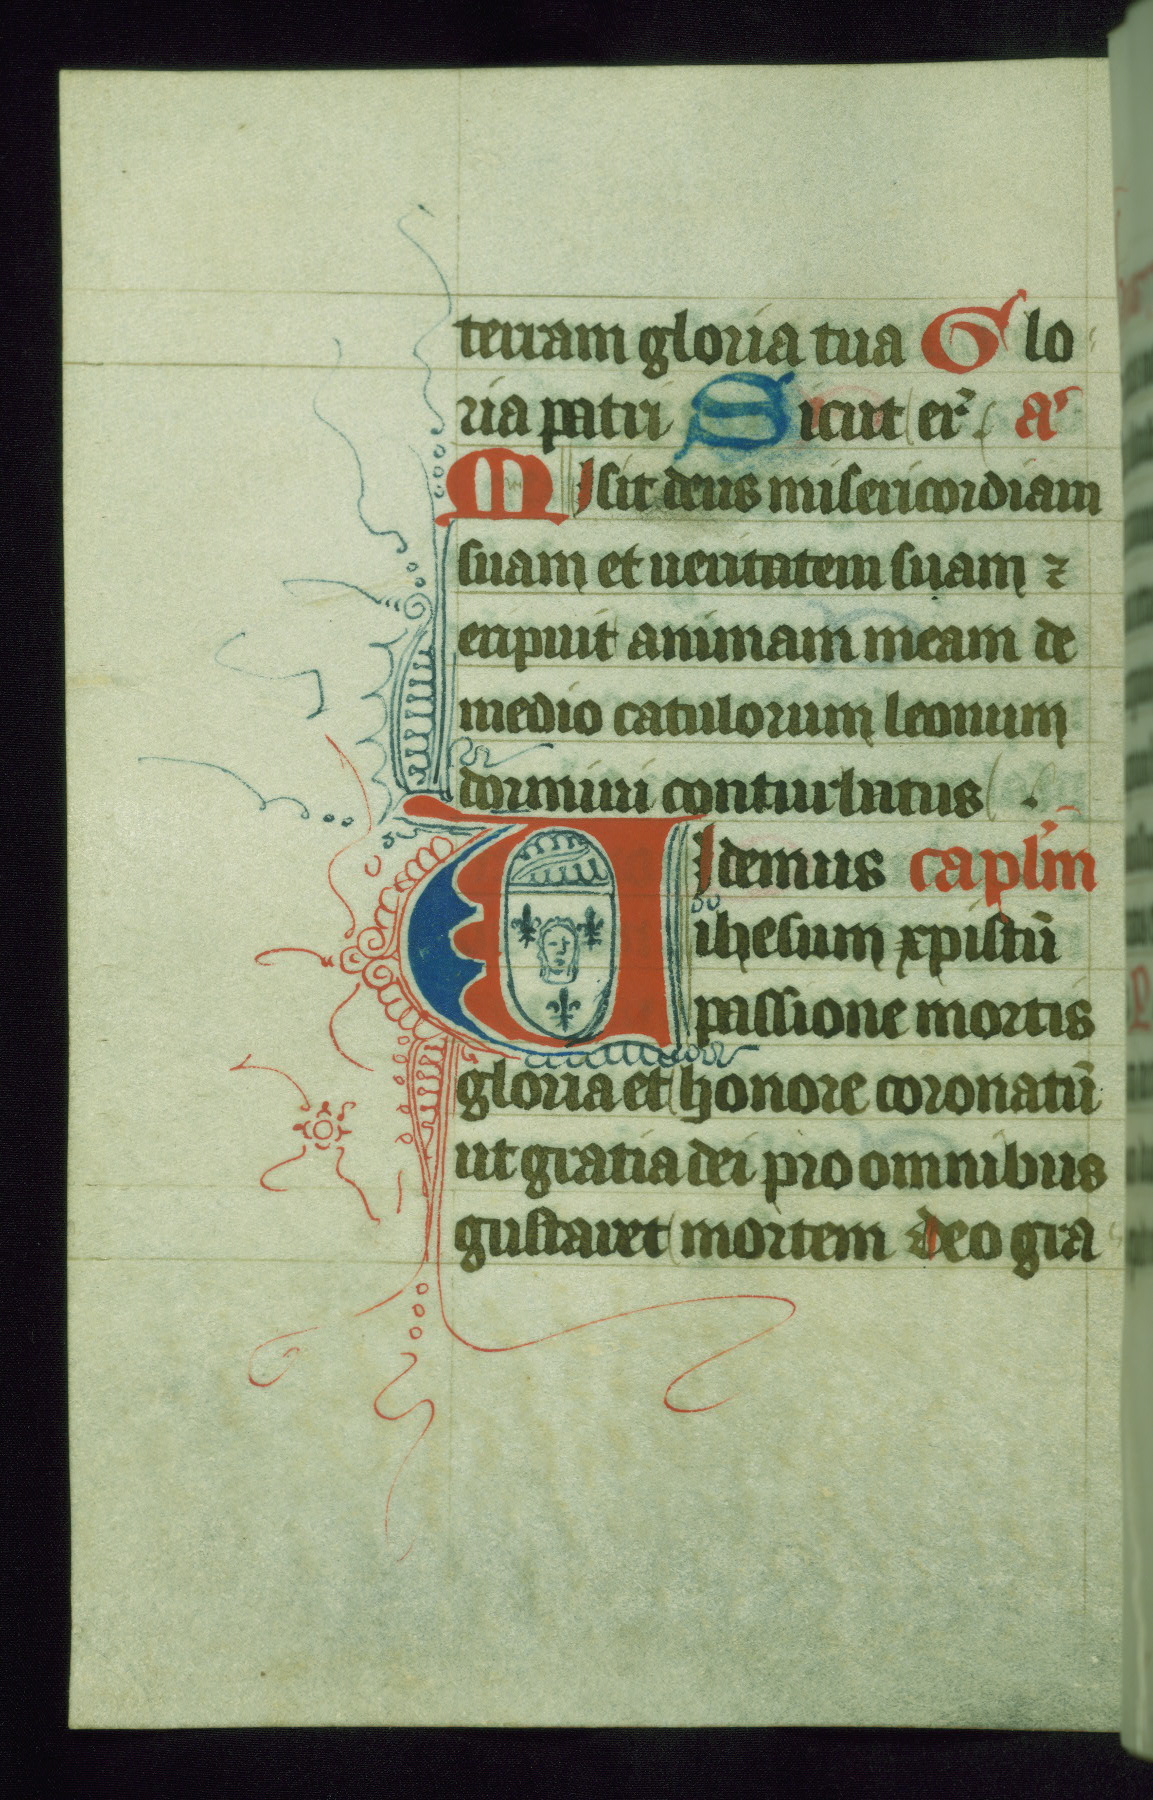 terram gloria tua Glo
ria patri Sicut er̉. a͛
Misit deus misericordiam
suam et ueritatem suam ⁊
eripuit animam meam de
medio catulorum leonum
dormiui conturbatus.
Uidemus caplm̄
ihesum xpistū
passione mortis
gloria et honore coronatū
ut gratia dei pro omnibus
gustaret mortem deo gra